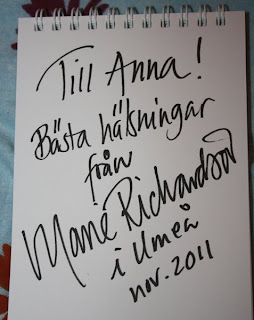 Till Anna!
Bästa hälsningar
från
Marie Richardson
i Umeå
nov. 2011